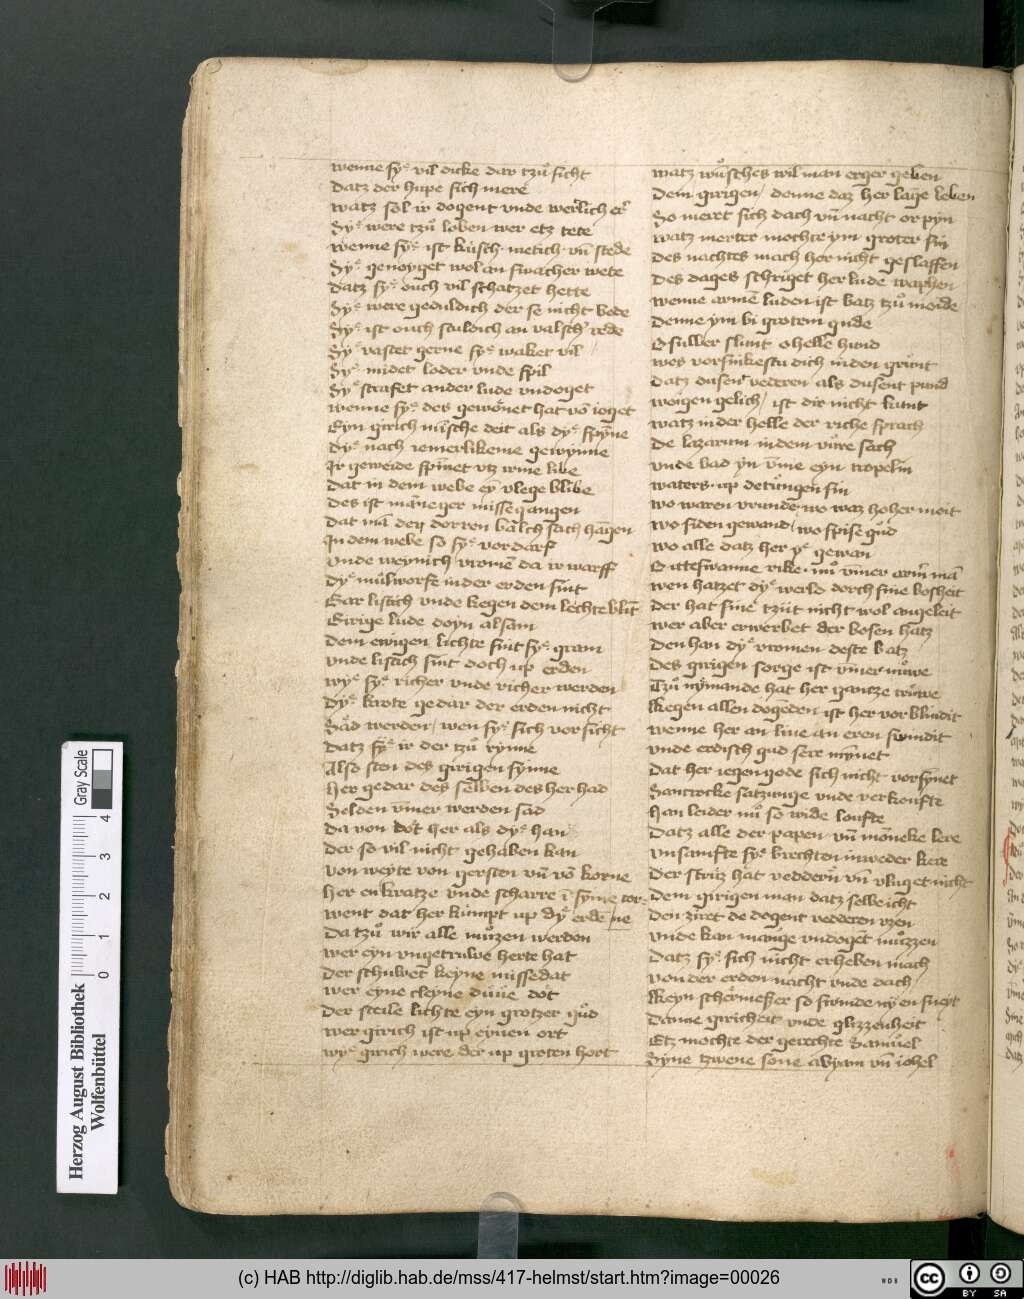 wenne syͤ vil dicke dar tzuͦ sicht
Datz der hupe sich mere
watz sol ir dogent vnde werlich er
Syͤ were tzuͦ loben wer etz tete
wenne syͤ ist kusch metich vn̄ stede
Syͤ genoyget wol an swacher wete
Datz syͤ ouch vil schatzet hette
Syͤ were geduldich der se nicht bede
Syͤ ist ouch sculdich an valsch' rede
Syͤ vastet gerne syͤ waket vil
Syͤ midet loder vnde spil
Syͤ strafet ander lude vndoget
wenne syͤ des gewonet hat vō ioget
Eyn girich mūsche deit als dyͤ spynne
Dyͤ nach iemerlikeme gewynne
Ir geweide spinnet vtz irme libe
Dat in dem webe ey vlege blibe
Des ist māneger misse gangen
Dat mā den dorren balch sach hagen
In dem webe so syͤ vordarf
Vnde weynich vromē da ir warff
Dyͤ mulworfe in der erden sint
Gar listich vnde kegen dem lechte blīt
Girige lude doyn alsam
Dem ewigen lichte sint syͤ gram
Vnde listich sint doch up erden
wyͤ syͤ richer vnde richer werden
Dyͤ krote gedar der erden nicht
Sad werden wen syͤ sich vorsicht
Datz syͤ ir der tzuͦ rynne
Also sten des girigen synne
Her gedar des selben des her had
Selden vmer werden sad
Da von dot her als dyͤ han
Der so vil nicht gehaben kan
von weyte von gersten vn̄ vō korne
Her en kratze vnde scharre ī syme torne
went dat her kumpt up dyͤ erde
Da tzuͦ wir alle muͦzen werden
wer eyn vngetruwe herte hat
Der schuwet keyne missedat
wer eyne cleyne duue dot
Der steile lichte eyn grotzer guͦd
wer girich ist up eynen ort
wyͤ girich were der up groten hort
watz wuͦsches wil man erger geben
Dem girigen denne daz her lage leben
So mert sich dach vn̄ nacht or pyn
watz merter mochte ym groter sin
Des nachtes mach her nicht geslaffen
Des dages schriget her lude waphen
wenne armē luden ist batz tzuͦ mode
Denne ym bi grotem gude
O sulber slunt o helle hund
wes vorsinkestu dich in den grunt
Datz dusent vederen als dusent pund
weigen gelich ist dir nicht kunt
watz in der helle der riche sprach
De lazarum in dem vure sach
vnde bad yn vme eyn tropelin
waters up de tungen sin
wo waren vrunde wo waz hoher moit
wo siden gewand wo spise guͦd
wo alle datz her ye gewan
wen hatzet dyͤ werld dorch sine bosheit
Der hat sine tzijt nicht wol angeleit
wer aber erwerbet der bosen hatz
Den han dyͤ vromen deste batz
Des girigen sorge ist vmer nuͦwe
Tzuͦ nymande hat her gantze truͦwe
Kegen allen dogeden ist her vor blindit
wenne her an liue an eren swindit
vnde erdisch gud sere mynnet
Dat her iegen gode sich nicht vorsynnet
Santrocke satzunge vnde verkoufte
Han leider nuͦ so wide loufte
Datz alle der papen vn̄ moneke lere
vnsamfte syͤ brechten in weder kere
Der strutz hat vedderen vn̄ vluget nicht
Dem girigen man datz selbe icht
Den ziret de dogent vedderen
vnde kan mange vndoget muͦzzen
Datz syͤ sich nicht erheben mach
von der erden nacht vnde dach
Keyn schermesser so swinde ny en sneyt
Danne giricheit vnde glizzenheit
Etz mochte der gerechte Samuel
Syne tzwene sone abyam vn̄ iohel
Herzog August Bibliothek
Wolfenbüttel
0 1 2 3 4 Gray Scale
(c) HAB http://diglib.hab.de/mss/417-helmst/start.htm?image=00026
WDB
cc BY SA